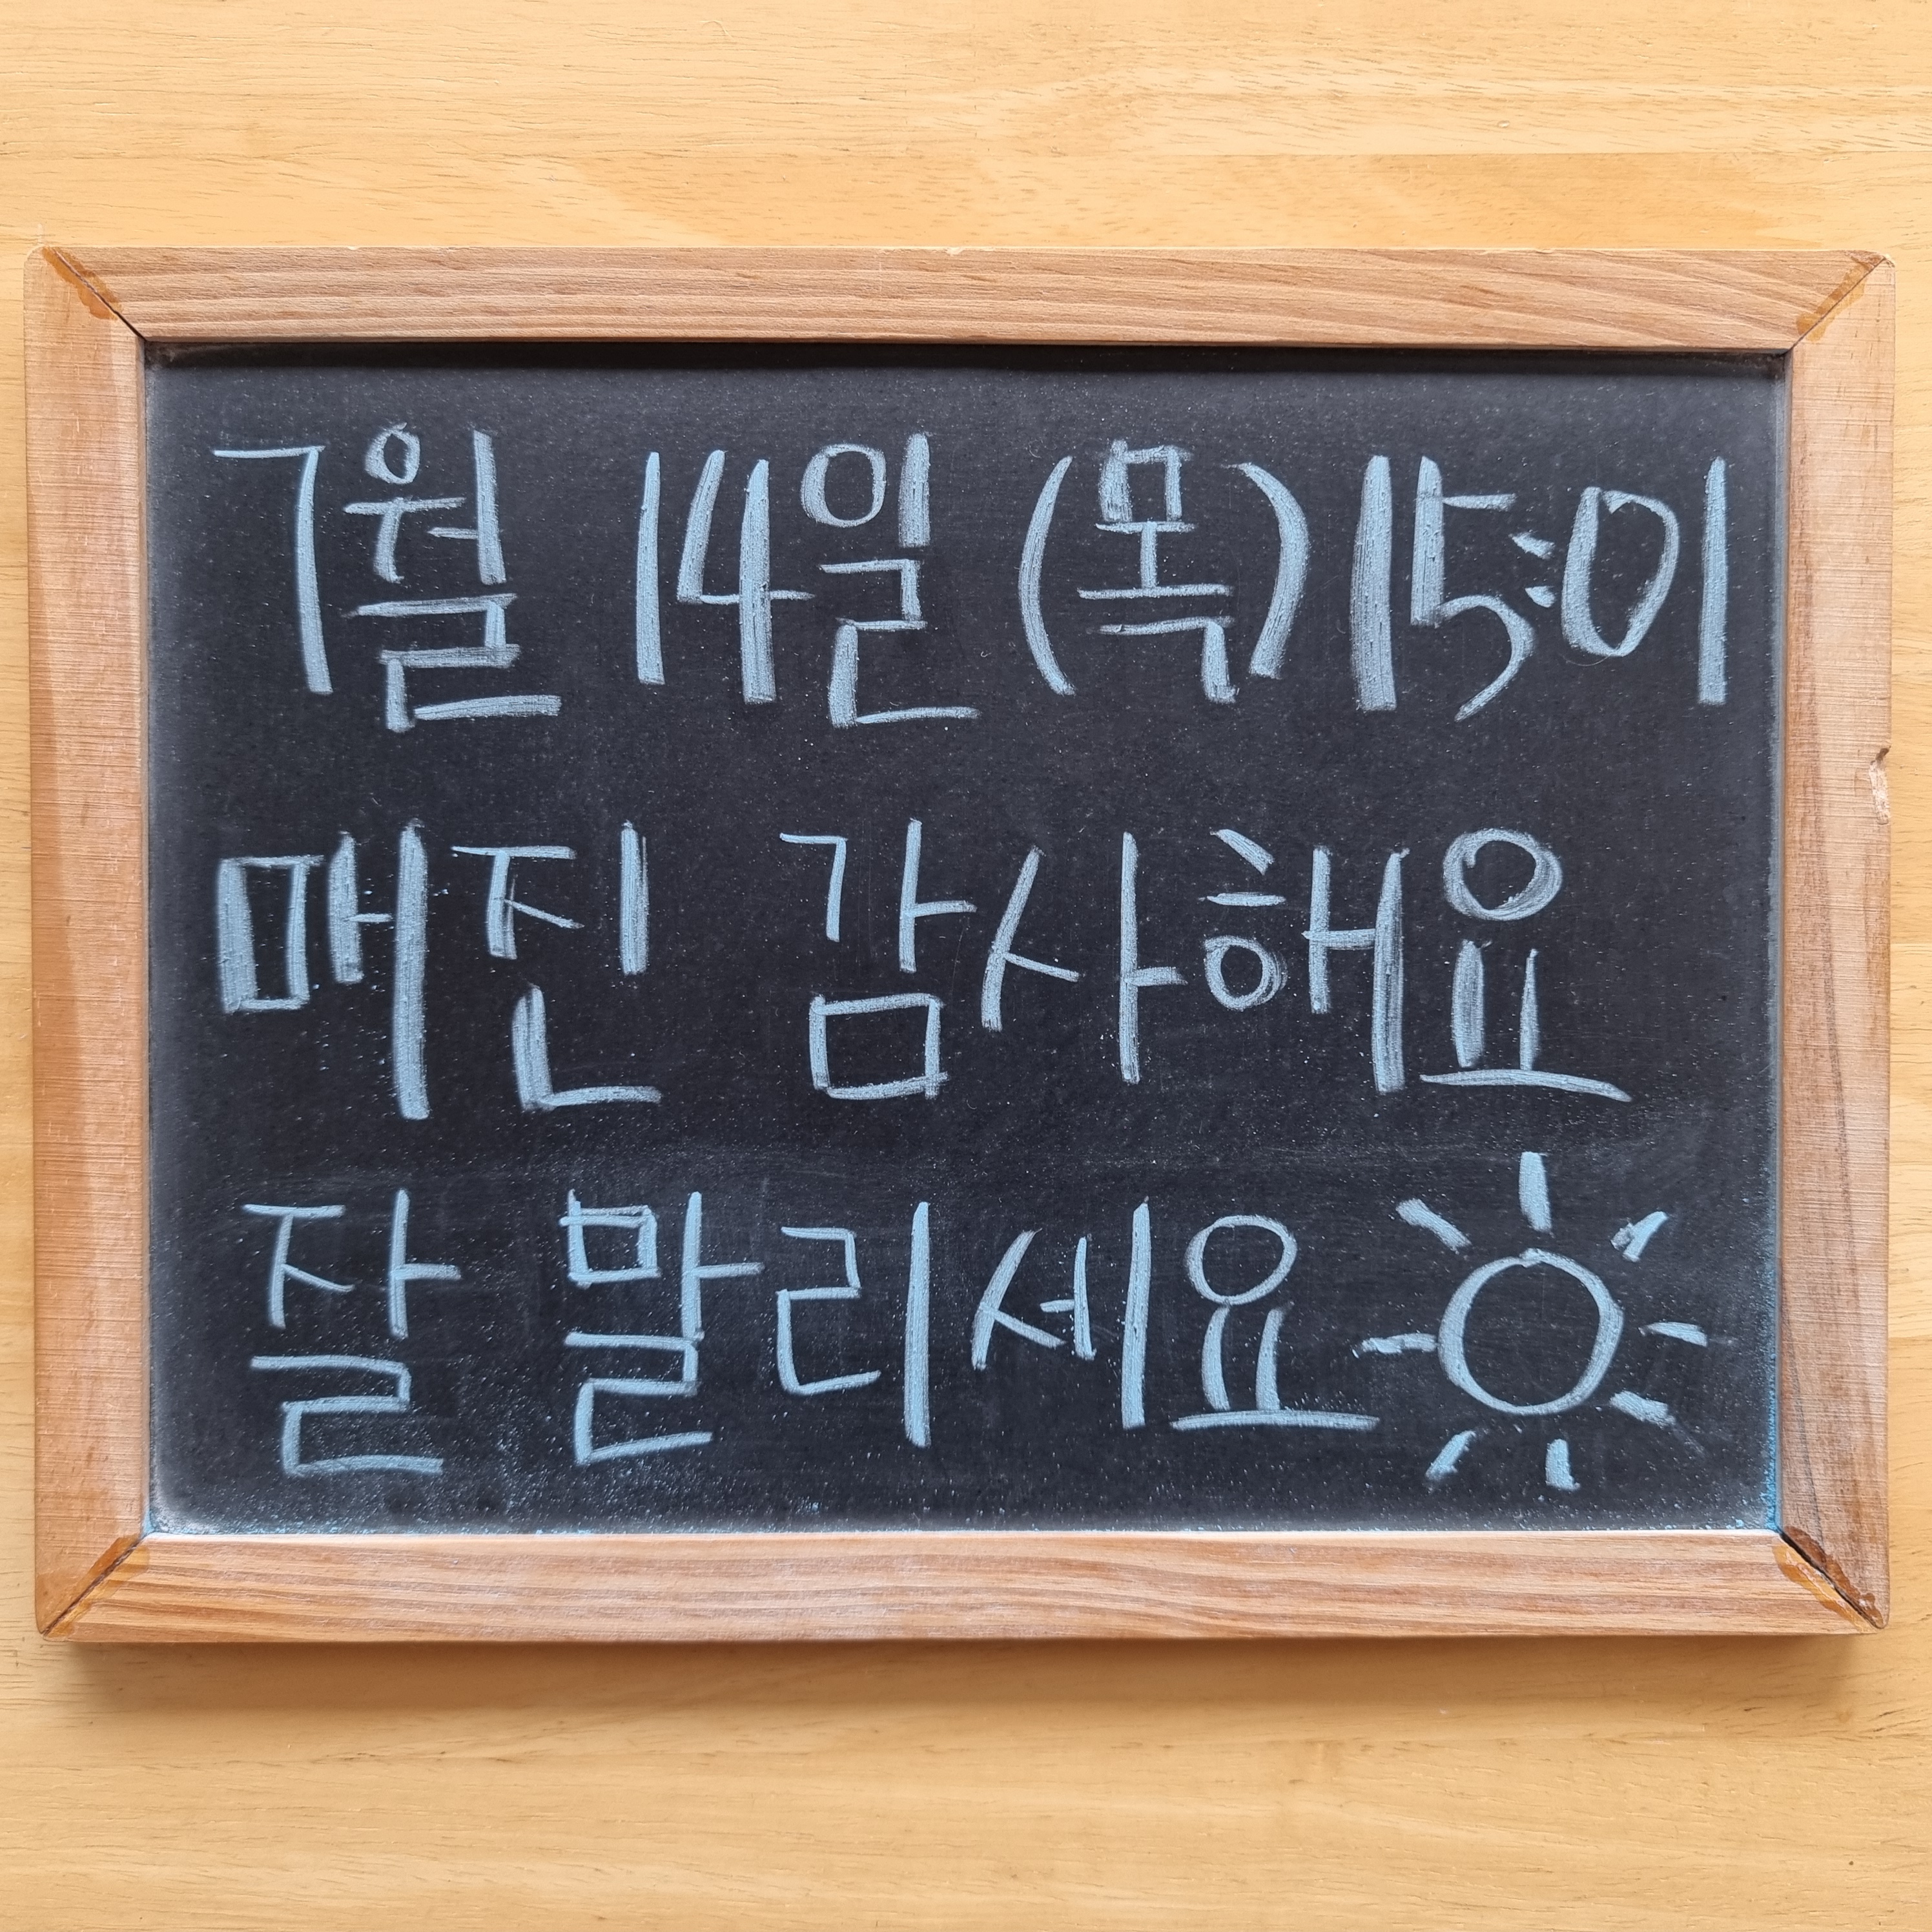 7월 14일 (목) 15:01
매진 감사해요
잘 말리세요